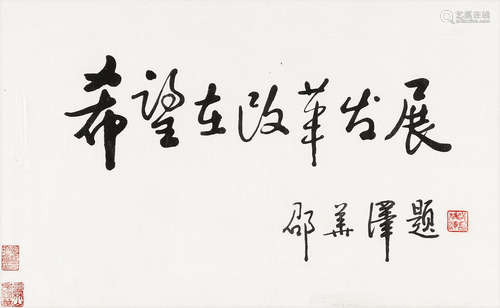 希望在改革发展
邵華澤題